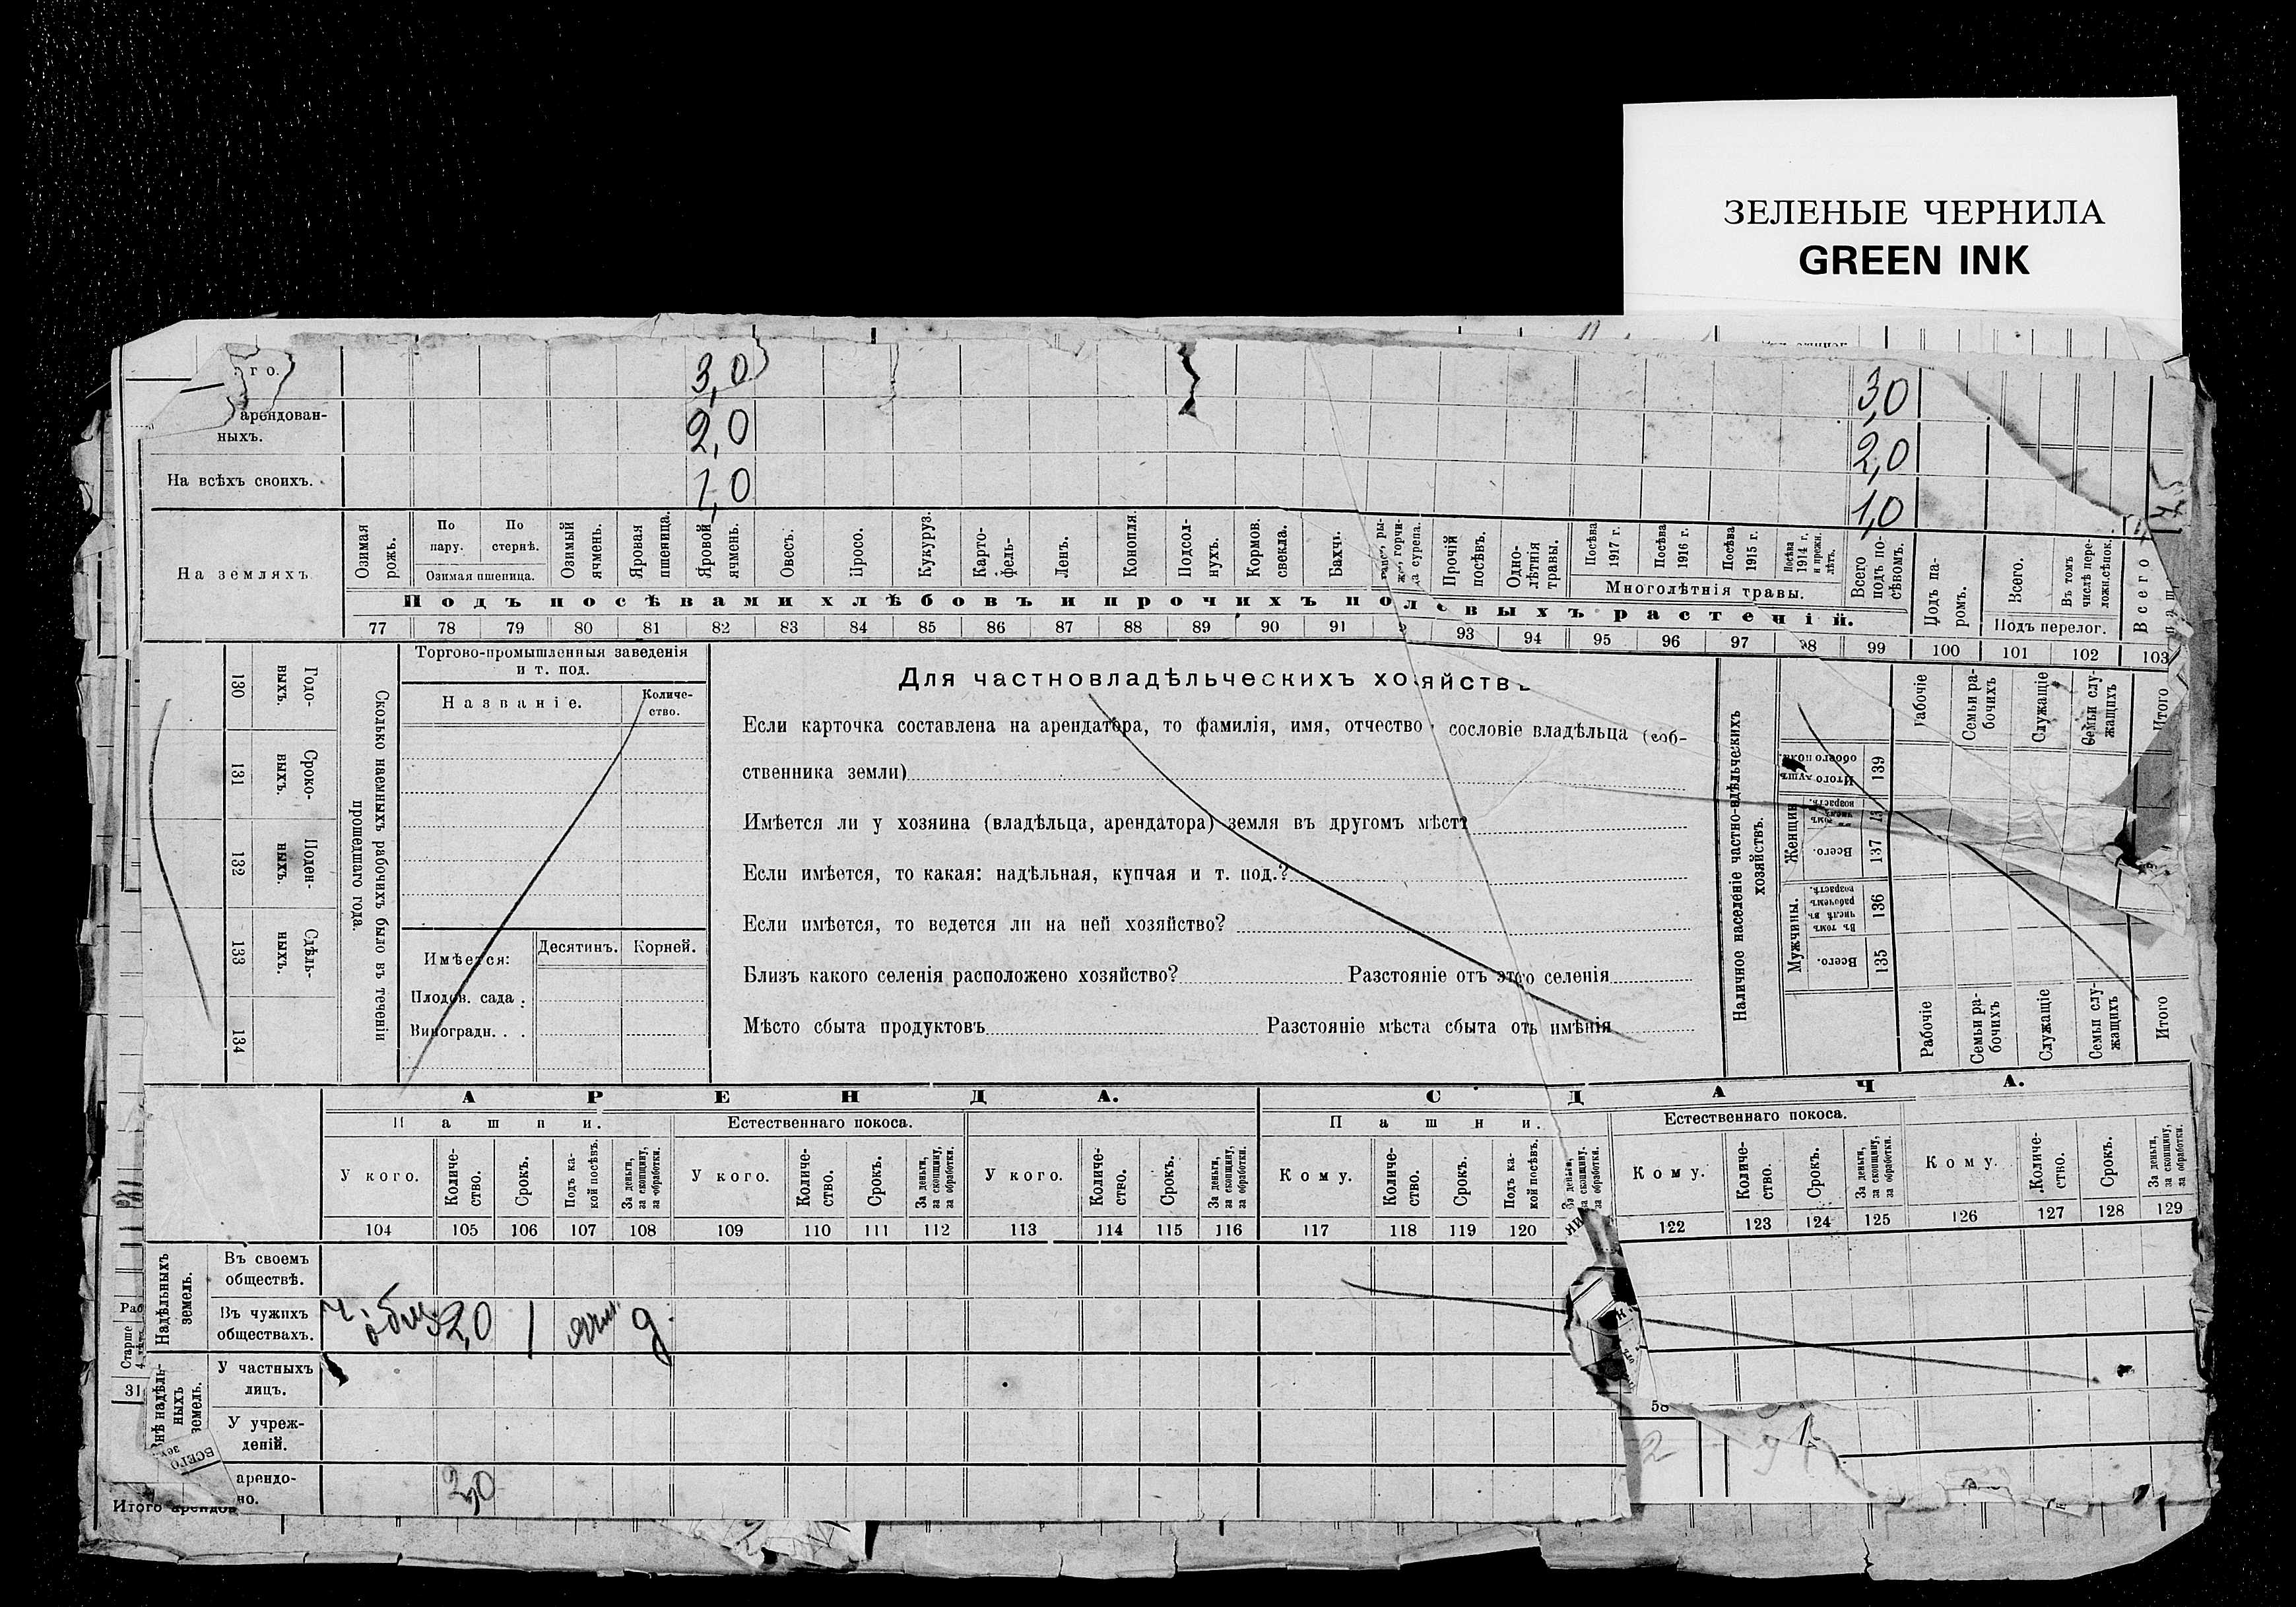 ЗЕЛЕНЫЕ ЧЕРНИЛА
GREEN INK
го. 3,0 3,0
арендован-
ныхъ. 2,0 2,0
На всѣхъ своихъ. 1,0 1,0
На земляхъ
Озимая рожь.
По пару.
По стернѣ.
Озимая пшеница.
Озимый ячмень.
Яровая пшеница.
Яровой ячмень.
Овесъ.
Просо.
Кукуруз.
Карто-
фель-
Ленъ.
Конопля.
Подсол-
нухъ.
Кормов. свекла.
Бахчи.
Прочій посѣвъ.
Одно-
лѣтнія травы.
Посѣва 1917 г.
Посѣва 1916 г.
Посѣва 1915 г.
Посѣва 1914 г. и прежн. лѣтъ.
Многолѣтнія травы.
Всего подъ по-
сѣвомъ.
Подъ па-
ромъ.
Всего.
Въ томъ числѣ пере-
ложн.сѣнок.
Подъ перелог.
Всего
Подъ посѣвами хлѣбовъ и прочихъ полевыхъ растеній.
77 78 79 80 81 82 83 84 85 86 87 88 89 90 91 93 94 95 96 97 98 99 100 101 102 103
130 Годо-
ныхъ.
131 Сроко-
выхъ.
132 Поден-
ныхъ.
133 Сдѣль-
ныхъ.
134
Сколько наемныхъ рабочихъ было въ теченіи
прошедшаго года.
Торгово-промышленныя заведенія
и т. под.
Названіе.
Количе-
ство.
Имѣется:
Десятинъ. Корней.
Плодов. сада .
Виноградн. . .
Для частновладѣльческихъ хозяйствъ
Если карточка составлена на арендатора, то фамилія, имя, отчество сословіе владѣльца (соб-
ственника земли)
Имѣется ли у хозяина (владѣльца, арендатора) земля въ другомъ мѣстѣ
Если имѣется, то какая: надѣльная, купчая и т. под.?
Если имѣется, то ведется ли на ней хозяйство?
Близъ какого селенія расположено хозяйство? Разстояніе отъ этого селенія
Мѣсто сбыта продуктовъ Разстояніе мѣста сбыта отъ имѣнія
Наличное населеніе частно-владѣльческихъ
хозяйствъ.
Рабочіе
Семьи ра-
бочихъ
Служащіе
Семьи слу-
жащихъ
Итого
Итого душъ обоего пола. 139
Женщин
Всего. 137
Мужчины.
Въ томъ числѣ въ рабочемъ возрастѣ. 136
Всего. 135
Рабочіе
Семьи ра-
бочихъ
Служащіе
Семьи слу-
жащихъ
Итого
АРЕНДА. СДАЧА.
Пашни. Естественнаго покоса. Пашни. Естественнаго покоса.
У кого.
Количе-
ство.
Срокъ.
Подъ ка-
кой посѣвъ.
За деньги, за скопщину, за обработки.
У кого.
Количе-
ство.
Срокъ.
За деньги, за скопщину, за обработки.
У кого.
Количе-
ство.
Срокъ.
За деньги, за скопщину, за обработки.
Кому.
Количе-
ство.
Срокъ.
Подъ ка-
кой посѣвъ.
За деньги, за скопщину, за обработки.
Кому.
Количе-
ство.
Срокъ.
За деньги, за скопщину, за обработки.
Кому.
Количе-
ство.
Срокъ.
За деньги, за скопщину, за обработки.
104 105 106 107 108 109 110 111 112 113 114 115 116 117 118 119 120 122 123 124 125 126 127 128 129
Надѣльныхъ
земель.
Въ своемъ
обществѣ.
Въ чужихъ
обществахъ. 2,0 1 д.
У частныхъ
лицъ.
У учреж-
деній.
арендо-
но. 2,0
Старше
31
58
ВСЕГО
Итого арендов